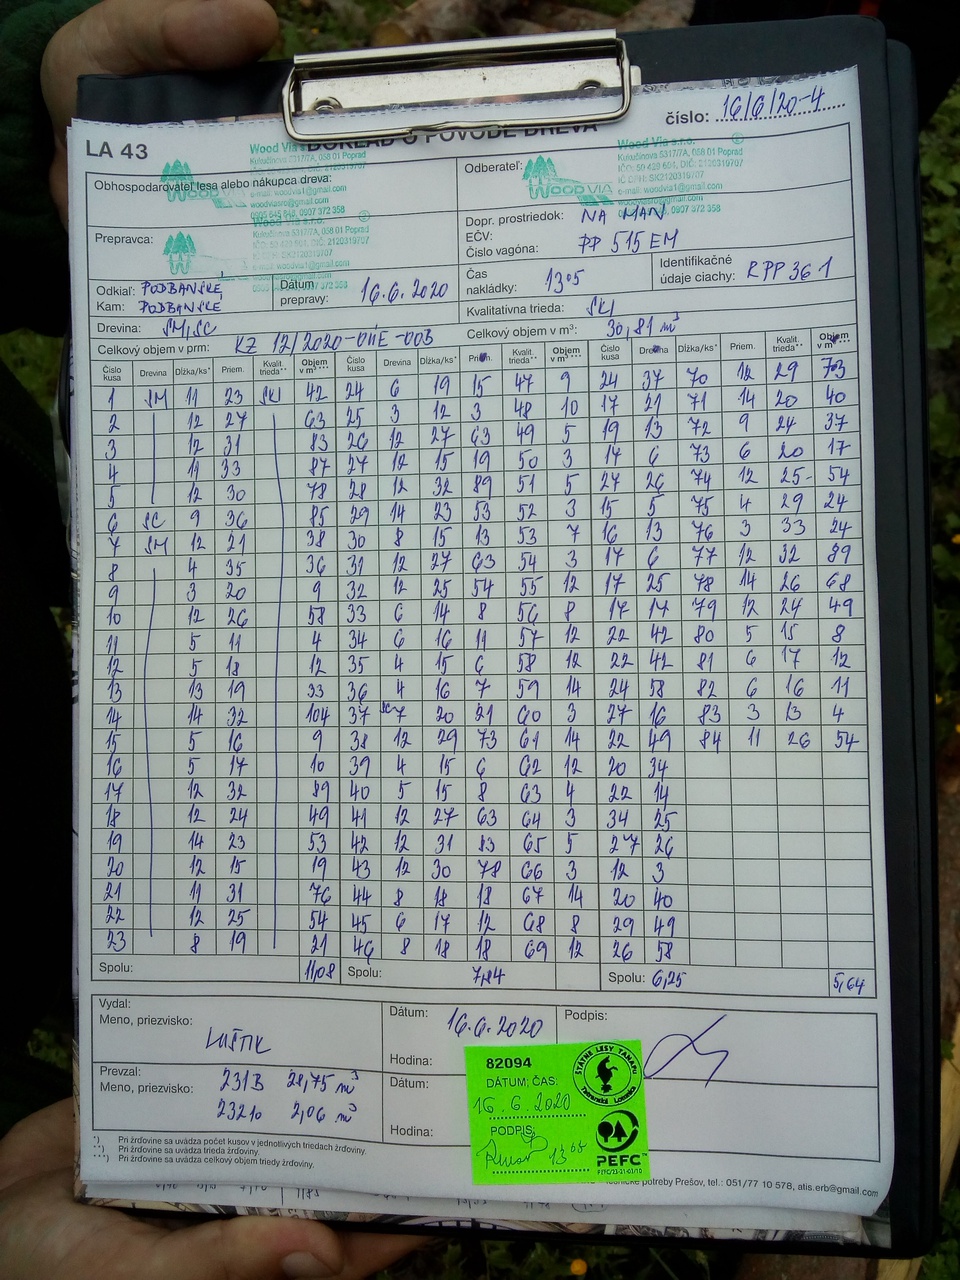 číslo: 16/6/20-4
LA 43
DOKLAD O PÔVODE DREVA
Wood Via s.r.o.
Kukučínova 5317/7A, 058 01 Poprad
Obhospodarovateľ lesa alebo nákupca dreva:
WOOD VIA
e-mail: woodvia1@gmail.com
woodviasro@gmail.com
Odberateľ:
Wood Via s.r.o.
Kukučínova 5317/7A, 058 01 Poprad
IČO: 50 429 604, DIČ: 2120319707
IČ DPH: SK2120319707
WOOD VIA
e-mail: woodvia1@gmail.com
Prepravca:
Kukučínova 5317/7A, 058 01 Poprad
Dopr. prostriedok: NA MAN
EČV:
Číslo vagóna: PP 515 EM
Odkiaľ: PODBANSKÉ
Kam: PODBANSKÉ
Dátum prepravy: 16.6.2020
Čas nakládky: 1305
Identifikačné údaje ciachy: RPP 36 1
Kvalitatívna trieda: SKJ
Drevina: SM, SC
Celkový objem v prm: KZ 12/2020-OIIE-OOB
Celkový objem v m³: 30,81 m³
Číslo kusa Drevina Dĺžka/ks* Priem. Kvalit. trieda** Objem v m³ *** Číslo kusa Drevina Dĺžka/ks* Priem. Kvalit. trieda** Objem v m³ *** Číslo kusa Drevina Dĺžka/ks* Priem. Kvalit. trieda** Objem v m³ ***
1 SM 11 23 SKJ 42 24 6 19 15 47 9 24 37 70 12 29 73
2 12 27 63 25 3 12 3 48 10 17 21 71 14 20 40
3 12 31 83 26 12 27 63 49 5 19 13 72 9 24 37
4 11 33 87 27 12 15 19 50 3 14 6 73 6 20 17
5 12 30 78 28 12 32 89 51 5 27 26 74 12 25 54
6 SC 9 36 85 29 14 23 53 52 3 15 5 75 4 29 24
7 SM 12 21 38 30 8 15 13 53 7 16 13 76 3 33 24
8 4 35 36 31 12 27 63 54 3 17 6 77 12 32 89
9 3 20 9 32 12 25 54 55 12 17 25 78 14 26 68
10 12 26 58 33 6 14 8 56 8 17 17 79 12 24 49
11 5 11 4 34 6 16 11 57 12 22 42 80 5 15 8
12 5 18 12 35 4 15 6 58 12 22 42 81 6 17 12
13 13 19 33 36 4 16 7 59 14 24 58 82 6 16 11
14 14 32 104 37 SC 7 20 21 60 3 27 16 83 3 13 4
15 5 16 9 38 12 29 73 61 14 22 49 84 11 26 54
16 5 17 10 39 4 15 6 62 12 20 34
17 12 32 89 40 5 15 8 63 4 22 14
18 12 24 49 41 12 27 63 64 3 34 25
19 14 23 53 42 12 31 83 65 5 27 26
20 12 15 19 43 12 30 78 66 3 12 3
21 11 31 76 44 8 18 18 67 14 20 40
22 12 25 54 45 6 17 12 68 8 29 49
23 8 19 21 46 8 18 18 69 12 26 58
Spolu: 11,08 Spolu: 7,84 Spolu: 6,25 5,64
Vydal:
Meno, priezvisko: LUŠTIK
Dátum: 16.6.2020
Podpis:
Hodina:
Prevzal:
Meno, priezvisko: 231B 28,75 m³
23210 2,06 m³
Dátum:
Hodina:
82094
DÁTUM, ČAS:
16.6.2020
PODPIS:
13 00
ŠTÁTNE LESY TANAPu
Tatranská Lomnica
PEFC
*) Pri žrďovine sa uvádza počet kusov v jednotlivých triedach žrďoviny.
**) Pri žrďovine sa uvádza trieda žrďoviny.
***) Pri žrďovine sa uvádza celkový objem triedy žrďoviny.
potreby Prešov, tel.: 051/77 10 578, atis.erb@gmail.com